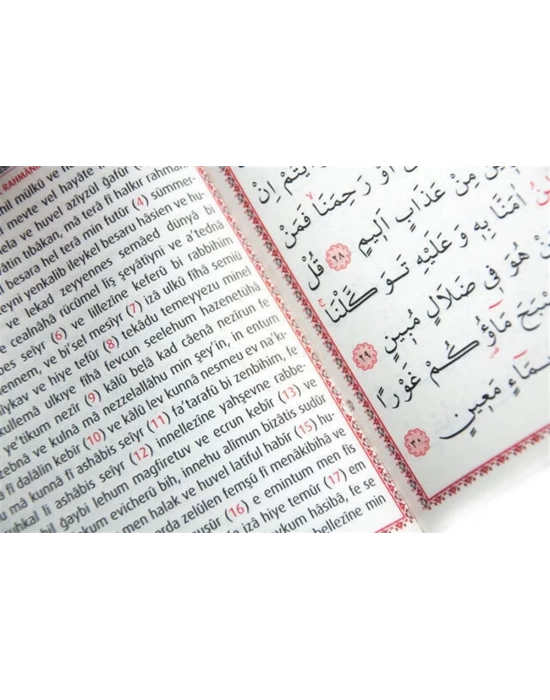 RAHMAN
hil mülkü ve
meyte vel hayâte
ela ve huvel azîyzül ğafûr
vâtin tıbâkan, mâ terâ fî halkır rahmâ
besara hel terâ min futûr (4) sümmer-
eyni yenkalib ileykel besaru hâsien ve hu-
ve lekad zeyyennes semâed dünyâ bi
ve cealnâhâ rücûmel liş şeyâtîyni ve a'tednâ
bes seiyr (6) ve lillezîne keferû bi rabbihim
ennem, ve bi'sel mesîyr (7) izâ ülkû fîhâ semiû
îykav ve hiye tefûr (8) tekâdu temeyyezu minel
kullemâ ulkıye fîhâ fevcun seelehum hazenetühâ
e'tikum nezîr (9) kâlû belâ kad câenâ nezîrun fe
zebnâ ve kulnâ mâ nezzelallâhu min şey'in, in entum
fî dalâlin kebîr (10) ve kâlû lev kunnâ nesmeu ev na'kı-
mâ kunnâ fî ashâbis seiyr (11) fa'terafû bi zenbihim, fe
uhkal li ashâbis seiyr (12) innellezîne yahşevne rabbe-
bil ğaybi lehum mağfiretuv ve ecrun kebîr (13) ve
kum evicherû bih, innehu alîmun bizâtis sudûr
men halak ve huvel latîful habîr (15) hu-
arda zelûlen femşû fî menâkibihâ ve
uşûr (16) e emintum men fis
izâ hiye temûr (17) em
eykum hâsıbâ, fe se
bellezîne min
اِنْ
اَوْ رَحِمَنَا فَمَنْ
مِنْ عَذَابٍ اَلٖيمٍ ٢٨ قُلْ
اٰمَنَّا بِهٖ وَ عَلَيْهِ تَوَكَّلْنَا
هُوَ فٖي ضَلَالٍ مُبٖينٍ ٢٩
مَاۤؤُكُمْ غَوْرًا
مَعٖينٍ ٣٠